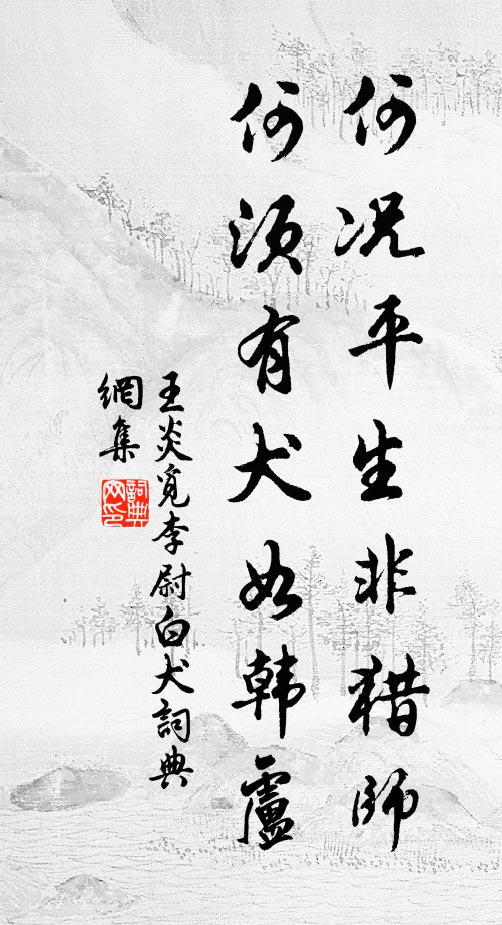 何况平生非猎师
何须有犬如韩盧
王炎觅李尉白犬詞典
網集
詞典
网印